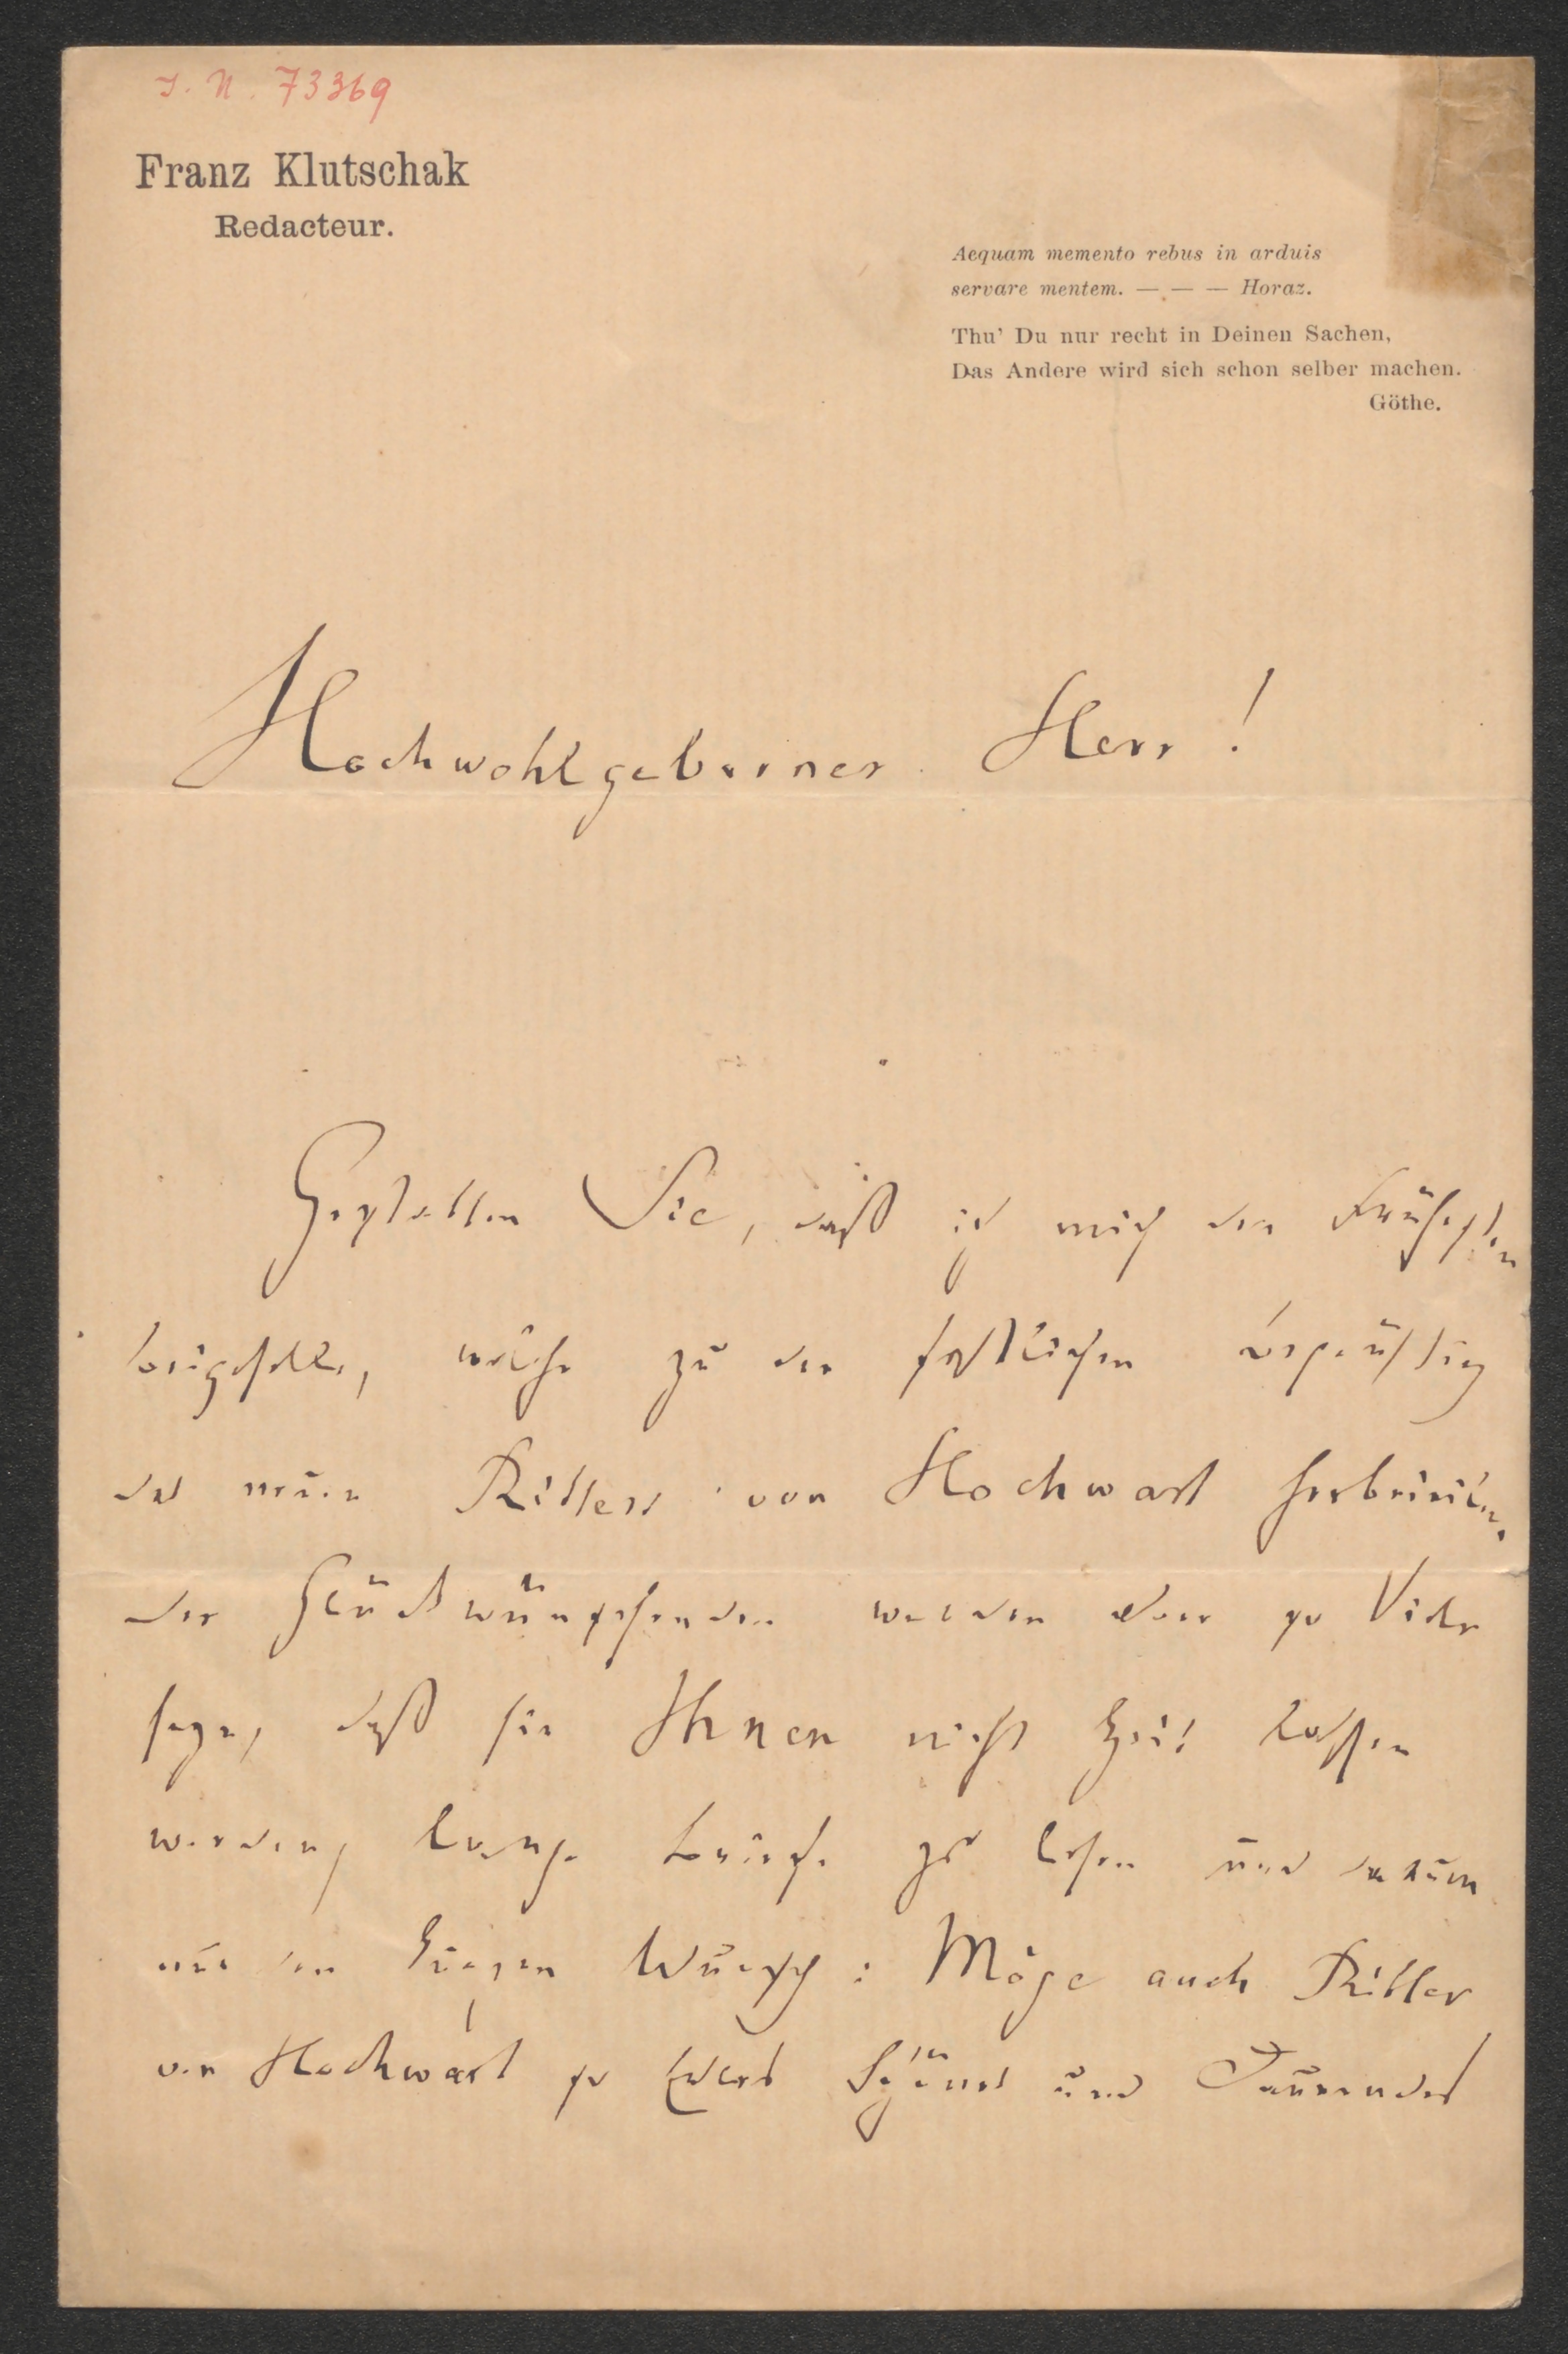 I. N. 73369
Franz Klutschak
Redacteur.
Aequam memento rebus in arduis
servare mentem. — — — Horaz.
Thu' Du nur recht in Deinen Sachen,
Das Andere wird sich schon selber machen.
Göthe.
Hochwohlgeborner Herr!
Gestatten Sie, daß ich mich den
beigeselle, welche zu der festlichen
des neuen Ritters von Hochwart
der Glückwünschenden werden aber so Viele
sein, daß sie Ihnen nicht Zeit lassen
werden, lange Briefe zu lesen und darum
nur den kurzen Wunsch: Möge auch Ritter
von Hochwart so Edles Schönes und